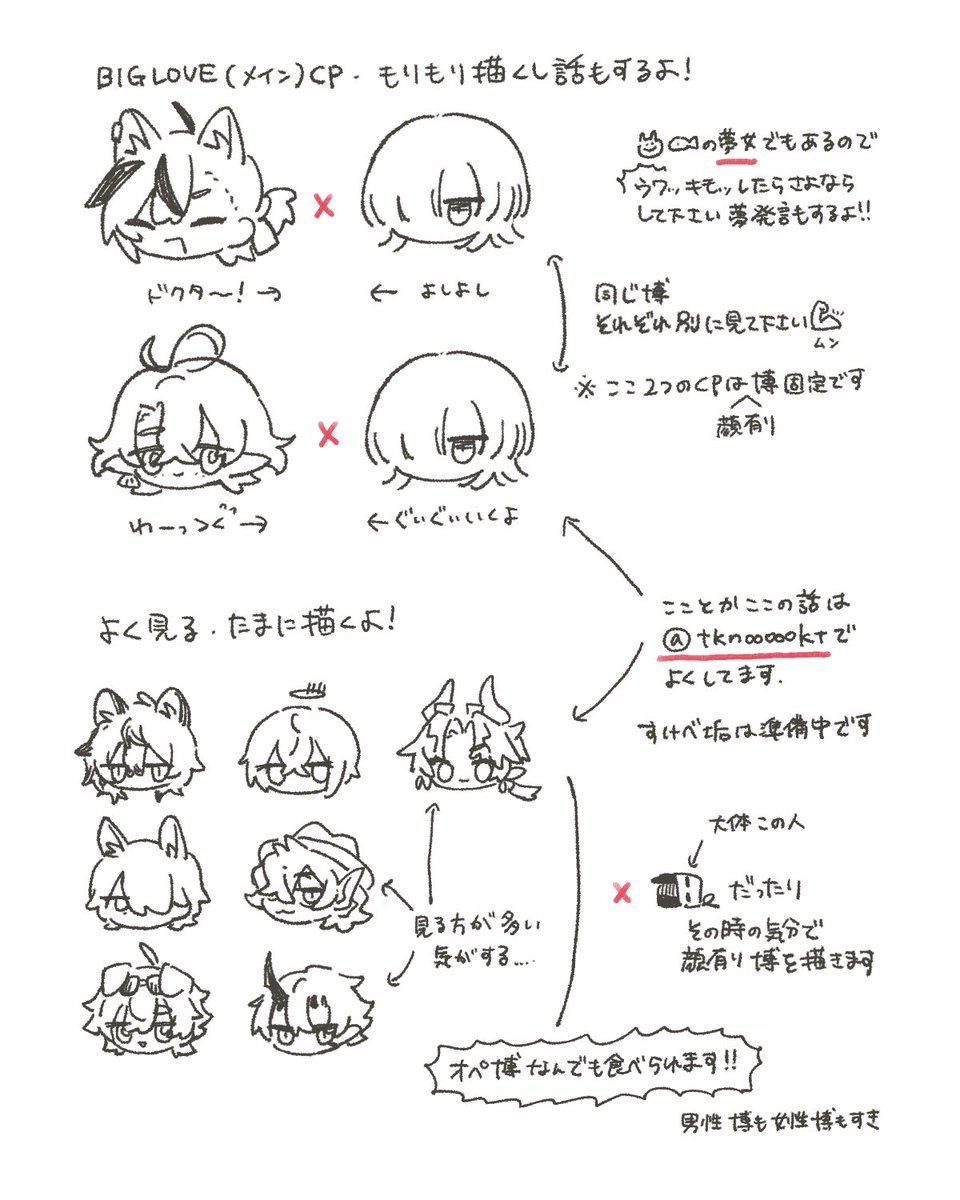 BIG LOVE(メイン)CP. もりもり描くし話もするよ!
の夢女でもあるので
ウワッキモッしたらさよなら
して下さい 夢発言もするよ!!
ドクタ〜!→
← よしよし
同じ博
それぞれ別に見て下さい
ムン
※ ここ2つのCPは博固定です
顔有り
わーっっぐっ→
←ぐいぐいいくよ
こことかここの話は
@tknoooooktで
よくしてます.
すけべ垢は準備中です
よく見る.たまに描くよ!
見る方が多い
気がする....
大体この人
× だったり
その時の気分で
顔有り博を描きます
オペ博なんでも食べられます!!
男性博も女性博もすき